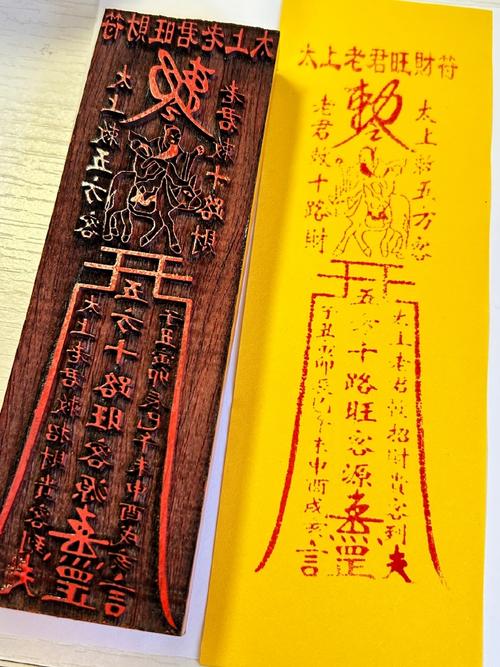 太上老君旺財符
敕
太上敕五方客
老君敕十路財
太上老君敕招財貴客到
五方十路旺客源
子丑寅卯辰巳午未申酉戌亥
罡
太上老君旺財符
敕
太上敕五方客
老君敕十路財
太上老君敕招財貴客到
五方十路旺客源
子丑寅卯辰巳午未申酉戌亥
罡